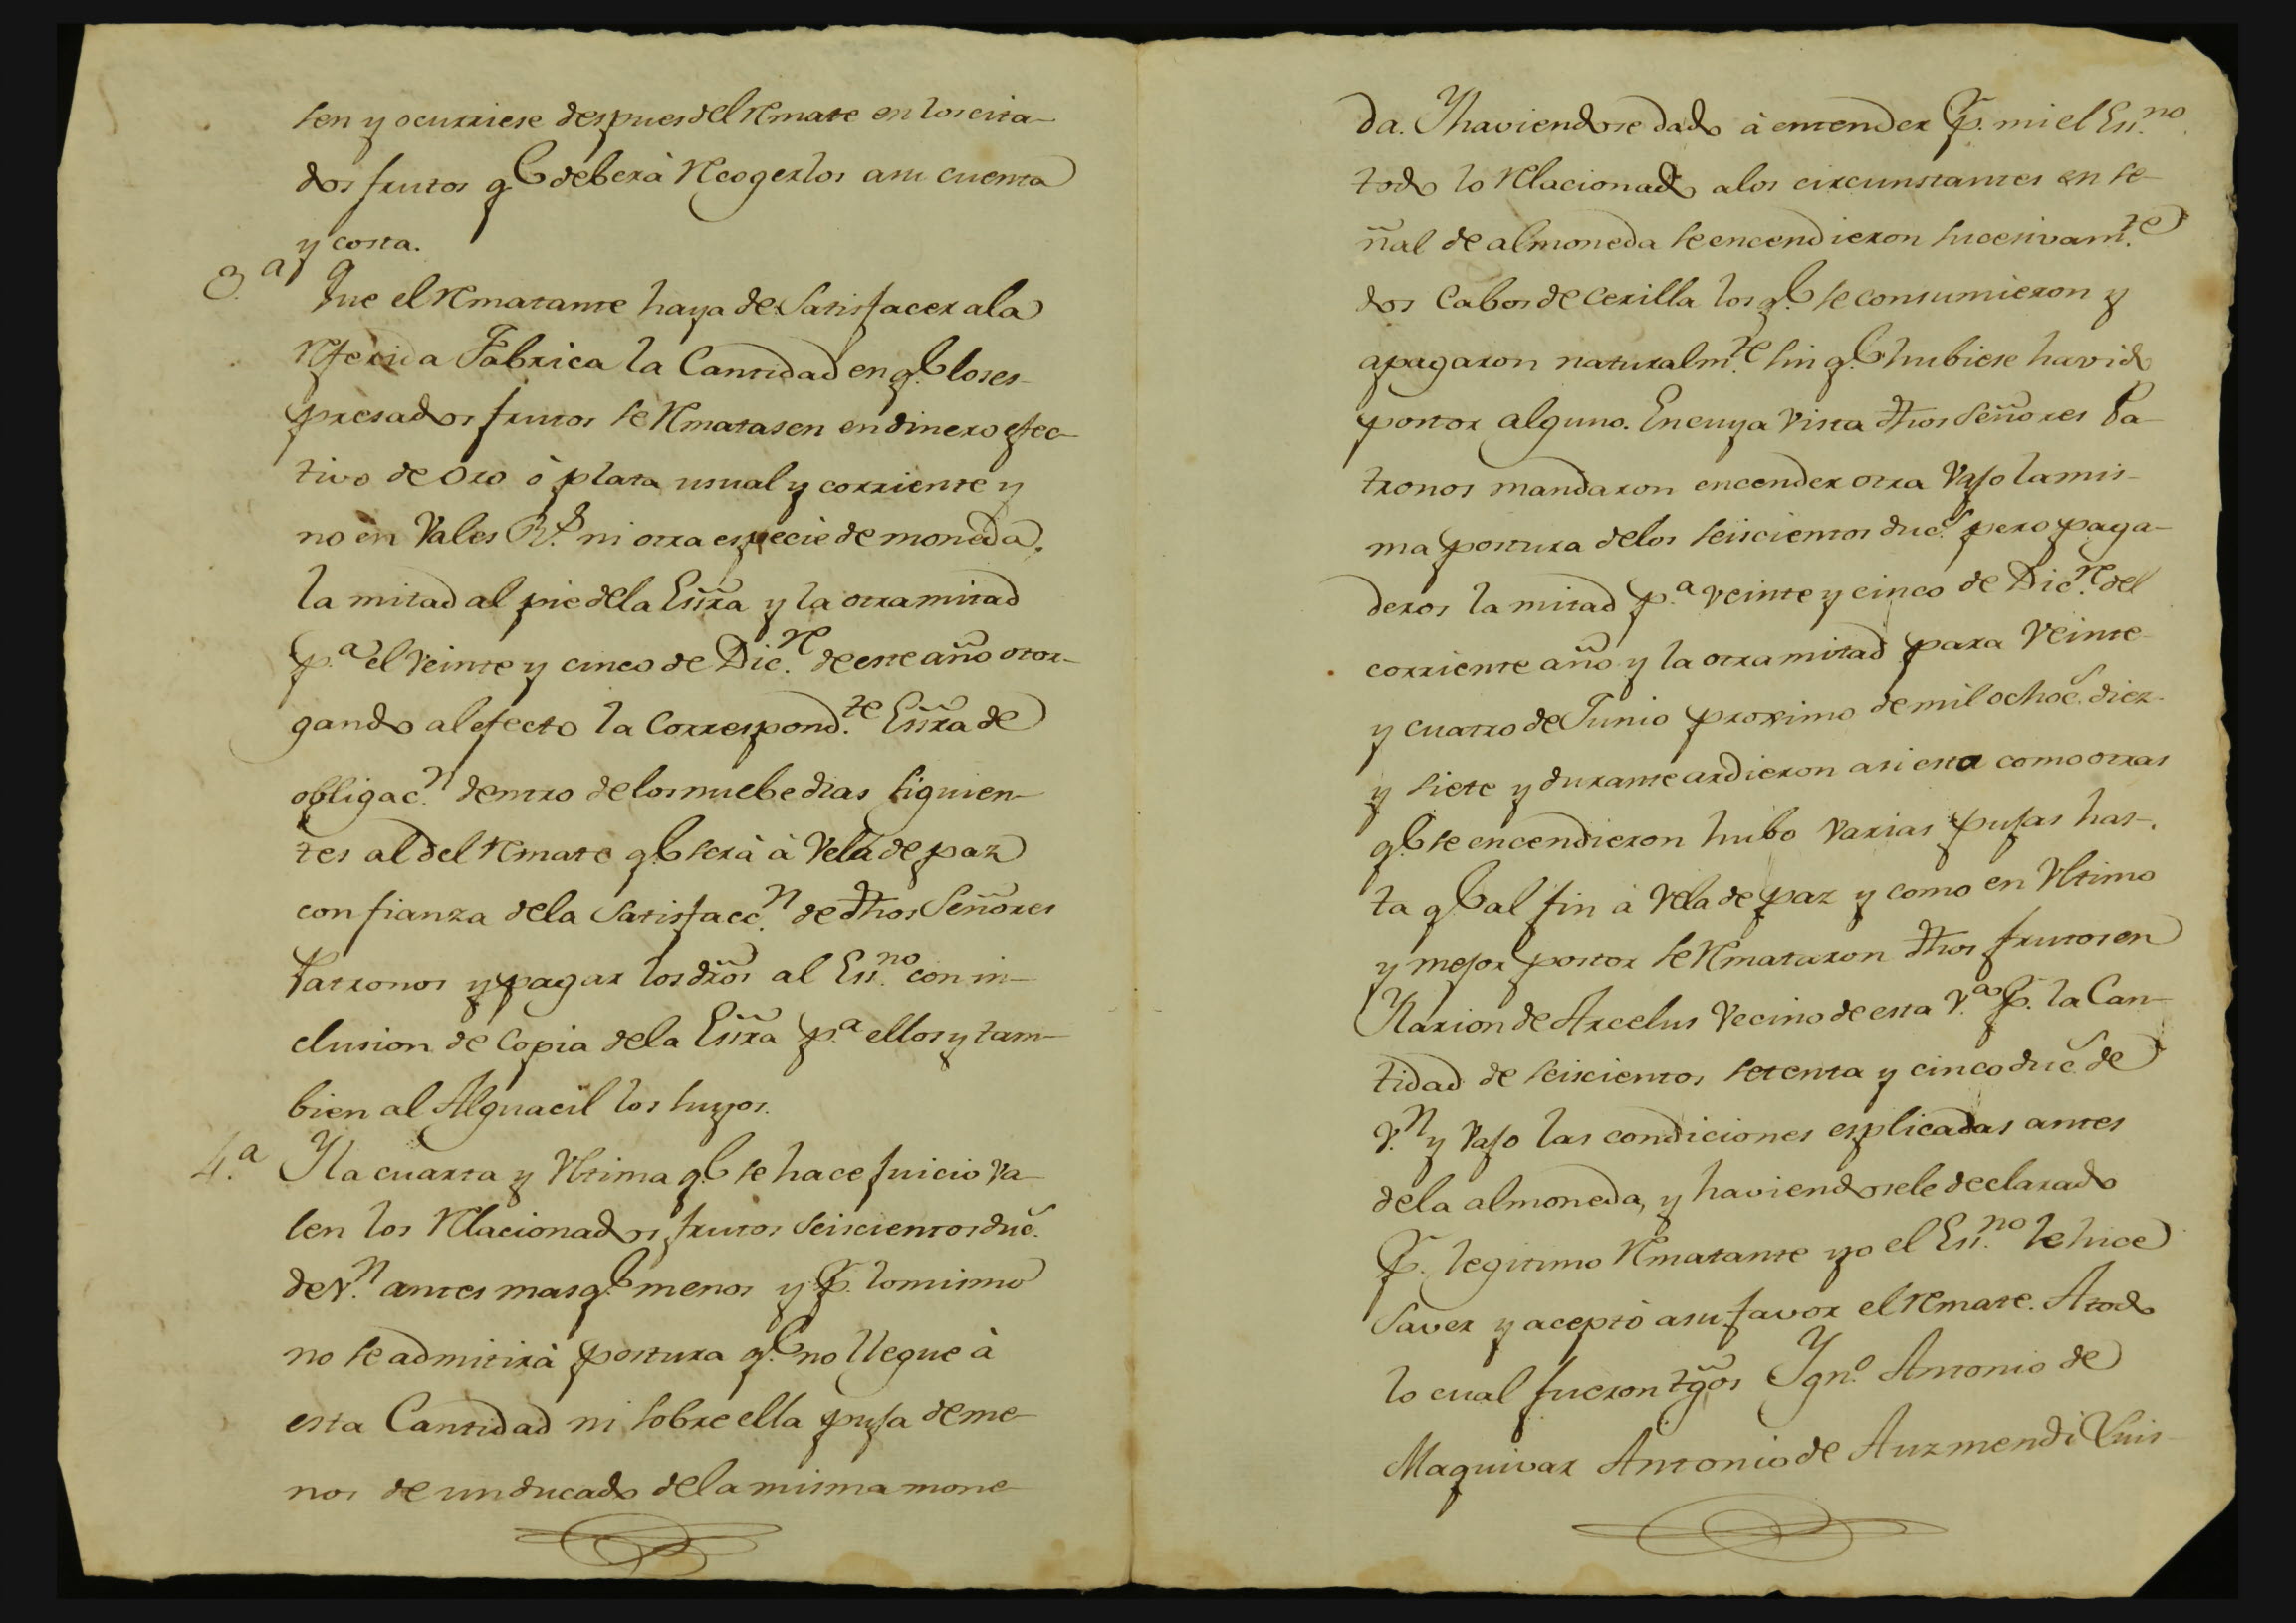 sen y ocurriese despues del remate en los cita-
dos frutos q.e deberà recogerlos a su cuenta
y costa.
3.a Que el rematante haya de satisfacer a la
referida Fabrica la Cantidad en q.e los es-
presados frutos se rematasen en dinero efec-
tivo de oro ò plata usual y corriente y
no en Vales R.s ni otra especie de moneda,
la mitad al pie de la Essra y la otra mitad
p.a el veinte y cinco de Dic.re de este año otor-
gando al efecto la Correspond.te Essra de
obligac.n dentro de los nuebe dias siguien-
tes al del remate q.e serà à Vela de paz
con fianza de la Satisfacc.n de dhos Señores
Patronos y pagar los dr̃os al Ess.no con in-
clusion de Copia de la Essra p.a ellos y tam-
bien al Alguacil los suyos.
4.a Y la cuarta y Vltima q.e se hace juicio va-
len los relacionados frutos seiscientos duc.s
de v.n antes mas q.e menos y p.r lo mismo
no se admitirà postura q.e no llegue à
esta Cantidad ni sobre ella puja de me-
nos de un ducado de la misma mone-
da. Y haviendose dado à entender p.r mi el Ess.no
todo lo relacionado a los circunstantes en se-
ñal de almoneda se encendieron sucesivam.te
dos Cabos de Cerilla los q.e se consumieron y
apagaron naturalm.te sin q.e hubiese havido
postor alguno. En cuya vista dhos Señores Pa-
tronos mandaron encender otra vajo la mis-
ma postura de los seiscientos duc.s pero paga-
deros la mitad p.a veinte y cinco de Dic.re del
corriente año y la otra mitad para veinte
y cuatro de Junio proximo de mil ochoc.s diez
y siete y durante ardieron asi esta como otras
q.e se encendieron hubo varias pujas has-
ta q.e al fin à Vela de paz y como en Vltimo
y mejor postor se remataron dhos frutos en
Ylarion de Arcelus Vecino de esta V.a p.r la Can-
tidad de seiscientos setenta y cinco duc.s de
v.n y vajo las condiciones esplicadas antes
de la almoneda, y haviendosele declarado
p.r legitimo rematante yo el Ess.no le hice
saver y aceptò a su favor el remate. A todo
lo cual fueron tgõs Ygn.o Antonio de
Maquivar Antonio de Auzmendi Luis